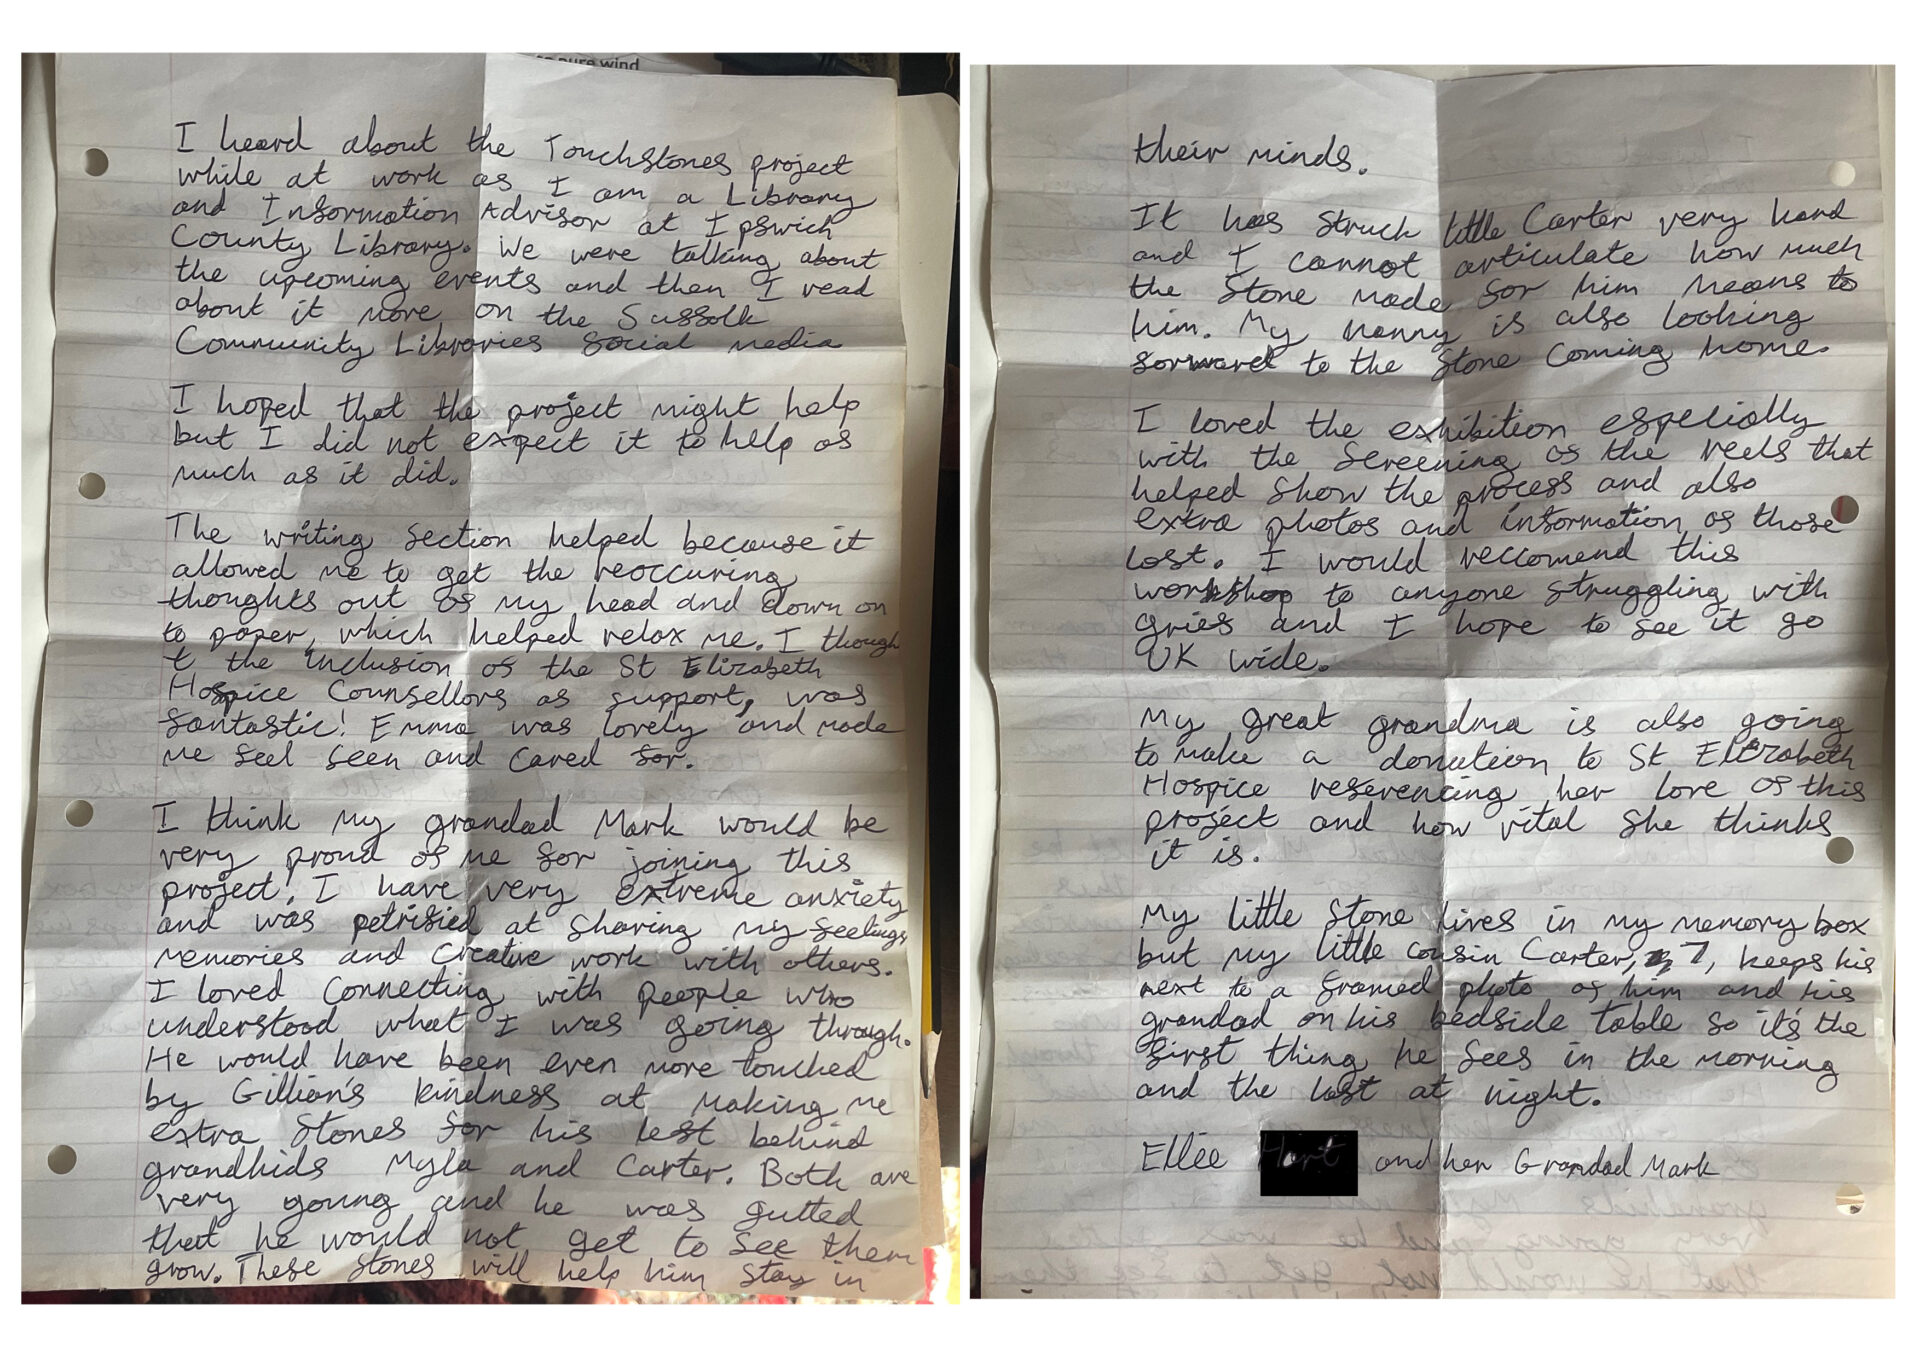 to pure wind
I heard about the Touchstones project
while at work as I am a Library
and Information Advisor at Ipswich
County Library. We were talking about
the upcoming events and then I read
about it more on the Suffolk
Community Libraries social media
I hoped that the project might help
but I did not expect it to help as
much as it did.
The writing section helped because it
allowed me to get the reoccuring
thoughts out of my head and down on
to paper, which helped relax me. I though
t the inclusion of the St Elizabeth
Hospice Counsellors as support, was
fantastic! Emma was lovely and made
me feel seen and cared for.
I think my grandad Mark would be
very proud of me for joining this
project! I have very extreme anxiety
and was petrified at sharing my feelings
memories and creative work with others.
I loved connecting with people who
understood what I was going through.
He would have been even more touched
by Gillian's kindness at making me
extra stones for his left behind
grandkids Myla and Carter. Both are
very young and he was gutted
that he would not get to see them
grow. These stones will help him stay in
their minds.
It has struck little Carter very hard
and I cannot articulate how much
the stone made for him means to
him. My nanny is also looking
forward to the stone coming home.
I loved the exhibition especially
with the screening of the reels that
helped show the process and also
extra photos and information of those
lost. I would reccomend this
workshop to anyone struggling with
grief and I hope to see it go
UK wide.
My great grandma is also going
to make a donation to St Elizabeth
Hospice referencing her love of this
project and how vital she thinks
it is.
My little stone lives in my memory box
but my little cousin Carter, 7, keeps his
next to a framed photo of him and his
grandad on his bedside table so it's the
first thing he sees in the morning
and the last at night.
Ellie and her Grandad Mark